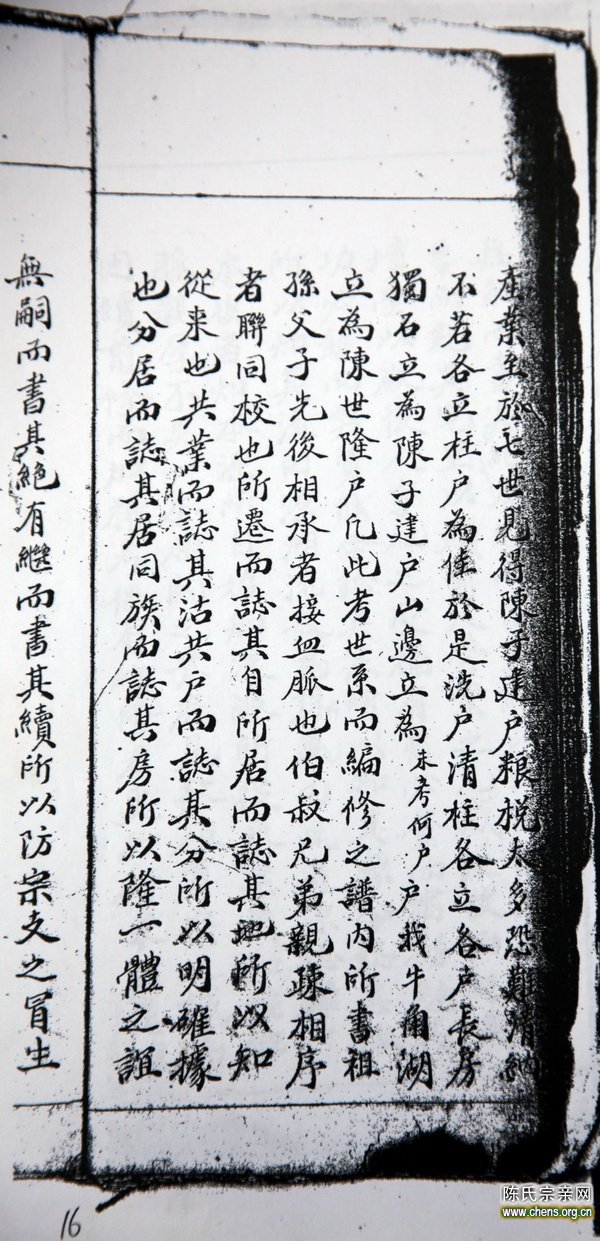 產業至於七世見得陳子達户粮税太多恐難清納
不若各立柱户為佳於是洗户清柱各立各户長房
獨石立為陳子達户山邊立為未考何户户我牛角湖
立為陳世隆户凡此考世系而編修之譜内所書祖
孫父子先後相承者接血脈也伯叔兄弟親疎相序
者聯同校也所遷而誌其自所居而誌其地所以知
從来也共業而誌其沽共户而誌其分所以明確據
也分居而誌其居同族而誌其房所以隆一體之誼
無嗣而書其絶有繼而書其續所以防宗支之冒生
16
陈氏宗亲网
www.chens.org.cn